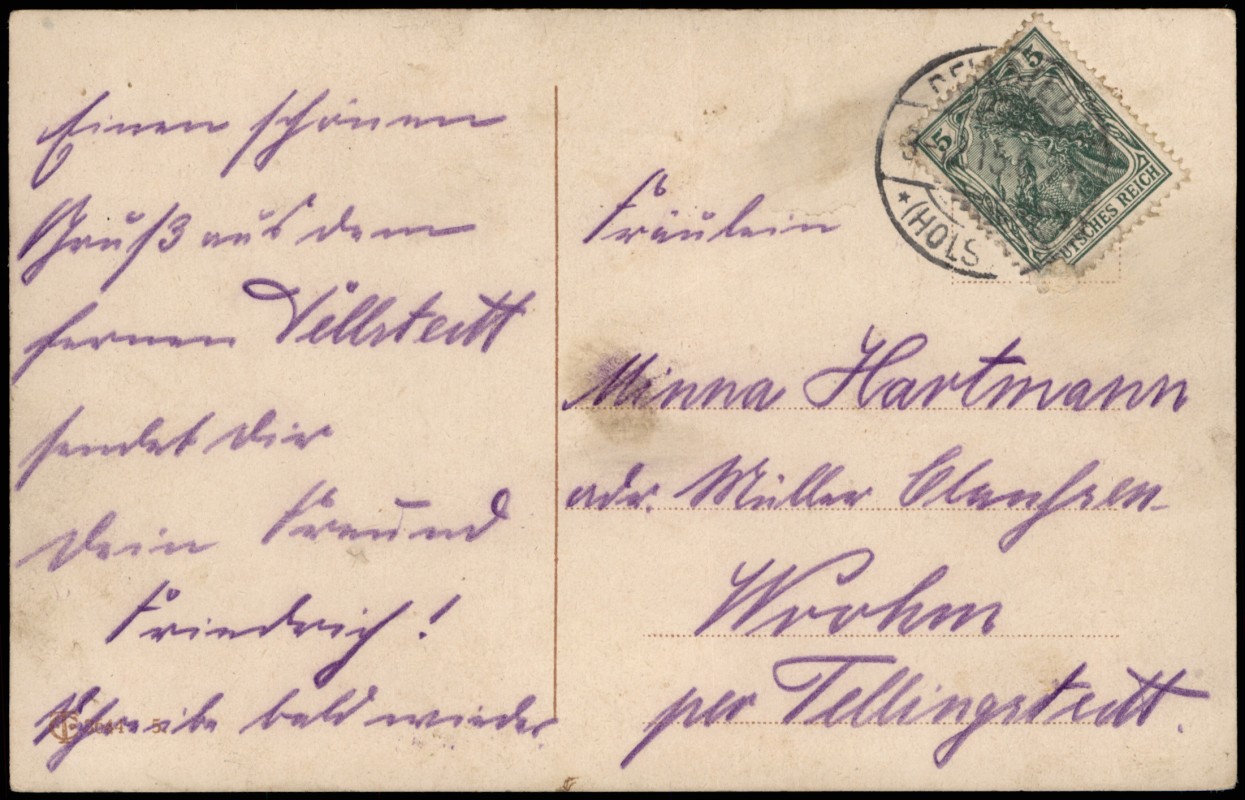 Einen schönen
Gruß aus dem
fernen Tellstedt
sendet dir
dein Freund
Friedrich!
Schreibe bald wieder
5
5
DEUTSCHES REICH
* (HOLS
Fräulein
Minna Hartmann
adr. Müller Claußen
Wrohm
per Tellingstedt.